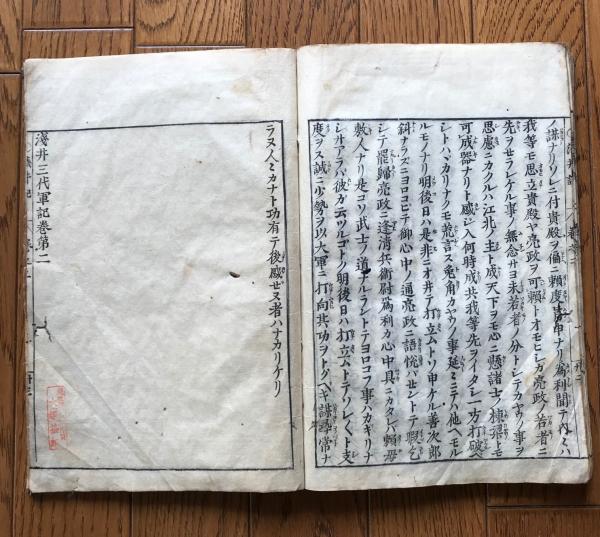 ノ謀ナリソレニ付貴殿ヲ偏ニ頼度申ナリ為利聞テ内々ハ
我等モ思立貴殿ヤ亮政ヲ可頼トオモヒシガ亮政ノ若者ニ
先ヲセラレケル事ノ無念サヨ未若者ノ分トシテカヤウノ事ヲ
思慮ニカクルハ江北ノ主ト成天下ヲモ心ニ懸諸士ノ棟梁トモ
可成器ナリト感シ入何時成共我等先ヲイタシ一方打破ヘ
シトハバカリナクモ荒言ス兎角カヤウノ事延ミニテハ他ヘモル
ルモノナリ明後日ハ是非ニオ井テ打立ムトソ申ケル善次郎
斜ナラズニヨロコビテ御心中ノ通亮政ニ語悦バセントテ暇乞
シテ罷歸亮政ニ逢清兵衛尉為利カ心中具ニカタレバ頼母
敷人ナリ是コソ武士ノ道ナルラントテヨロコフ事ハカギリナ
シサアラバ彼ガ云ツルゴトク明後日ハ打立ムトテソレ〱ト支
度ヲス誠ニ少勢ヲ以大軍ニ打向共功ヲトクベキ謀尋常ナ
ラヌ人ミカナト功有テ後感ゼヌ者ハナカリケリ
淺井三代軍記巻第二